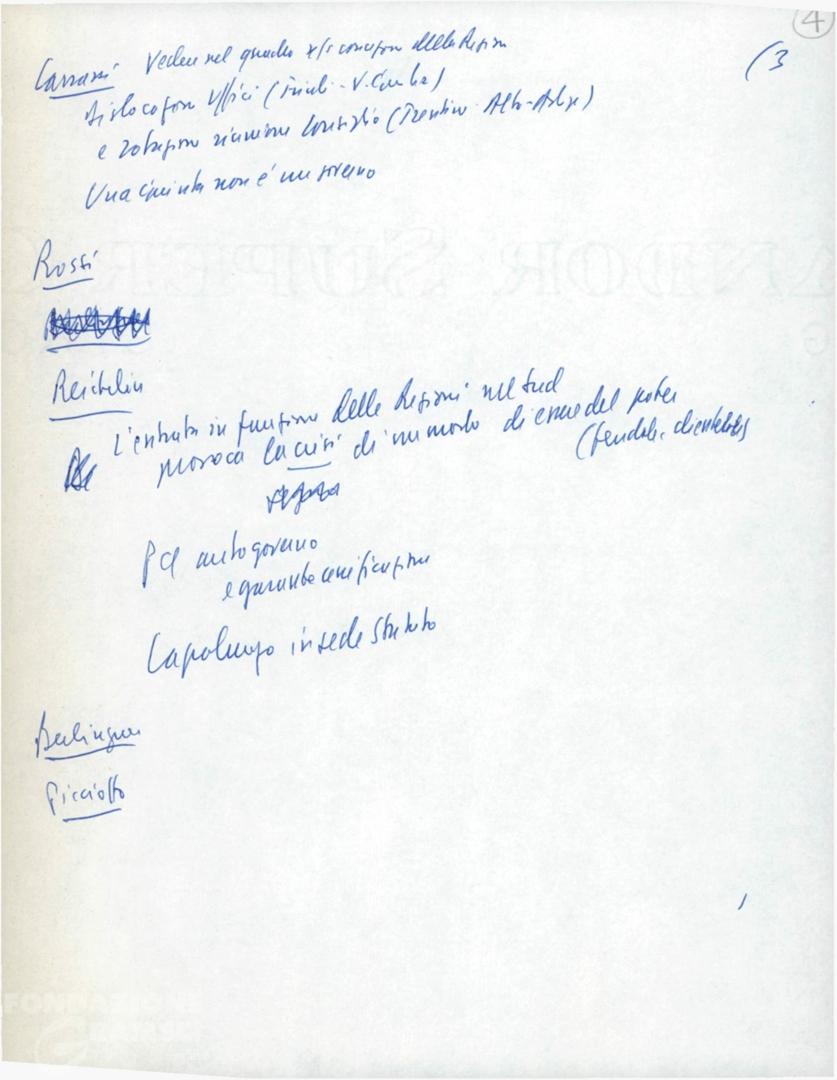 4
(3
Carrassi Vedere nel quadro della Regione
dislocazione Uffici (Friuli-V.
e rotazione riunione Consiglio (Trentino-Alto-Adige)
Una Giunta non è un
Rossi
Reichlin
L'entrata in funzione delle Regioni nel Sud
provoca la crisi di un modo di essere del potere
(feudale, clientelare)
PCI autogoverno
e garante unificazione
Capoluogo in sede Statuto
Berlinguer
Picciotto
FONDAZIONE